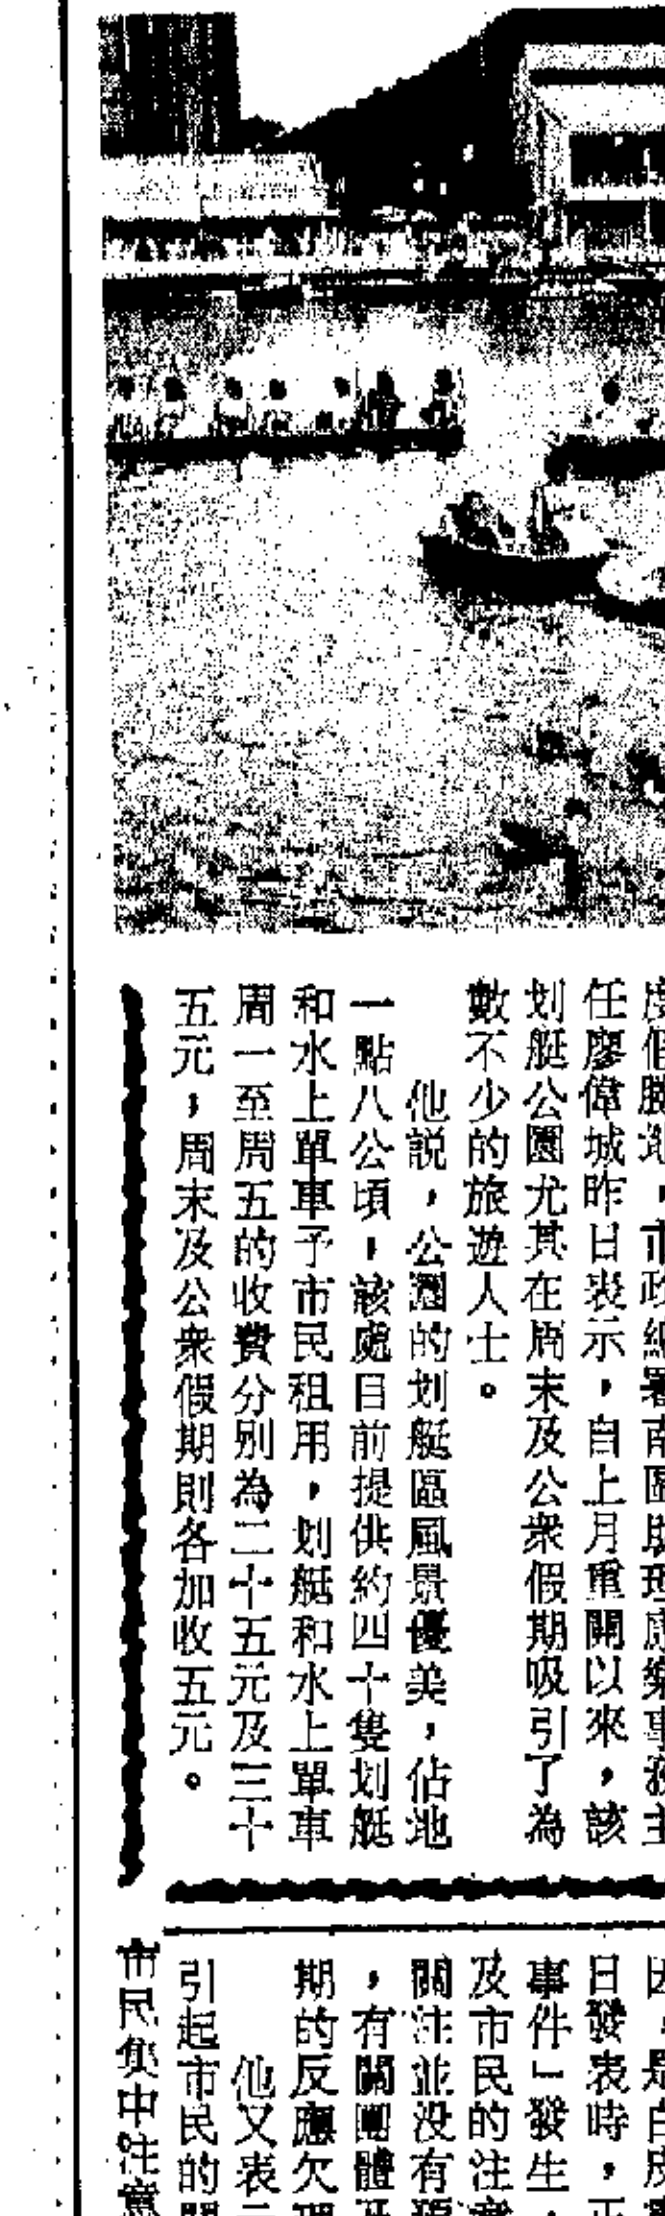 任廖偉城昨日表示，自上月重開以來，該
划艇公園尤其在周末及公衆假期吸引了為
數不少的旅遊人士。
他説，公園的划艇區風景優美，佔地
一點八公頃，該處目前提供約四十隻划艇
和水上單車予市民租用，划艇和水上單車
周一至周五的收費分別為二十五元及三十
五元，周末及公衆假期則各加收五元。
日發表時，正
事件」發生，
及市民的注意
關注並没有
，有關團體及
期的反應欠理
他又表示
引起市民的關
市民集中注意